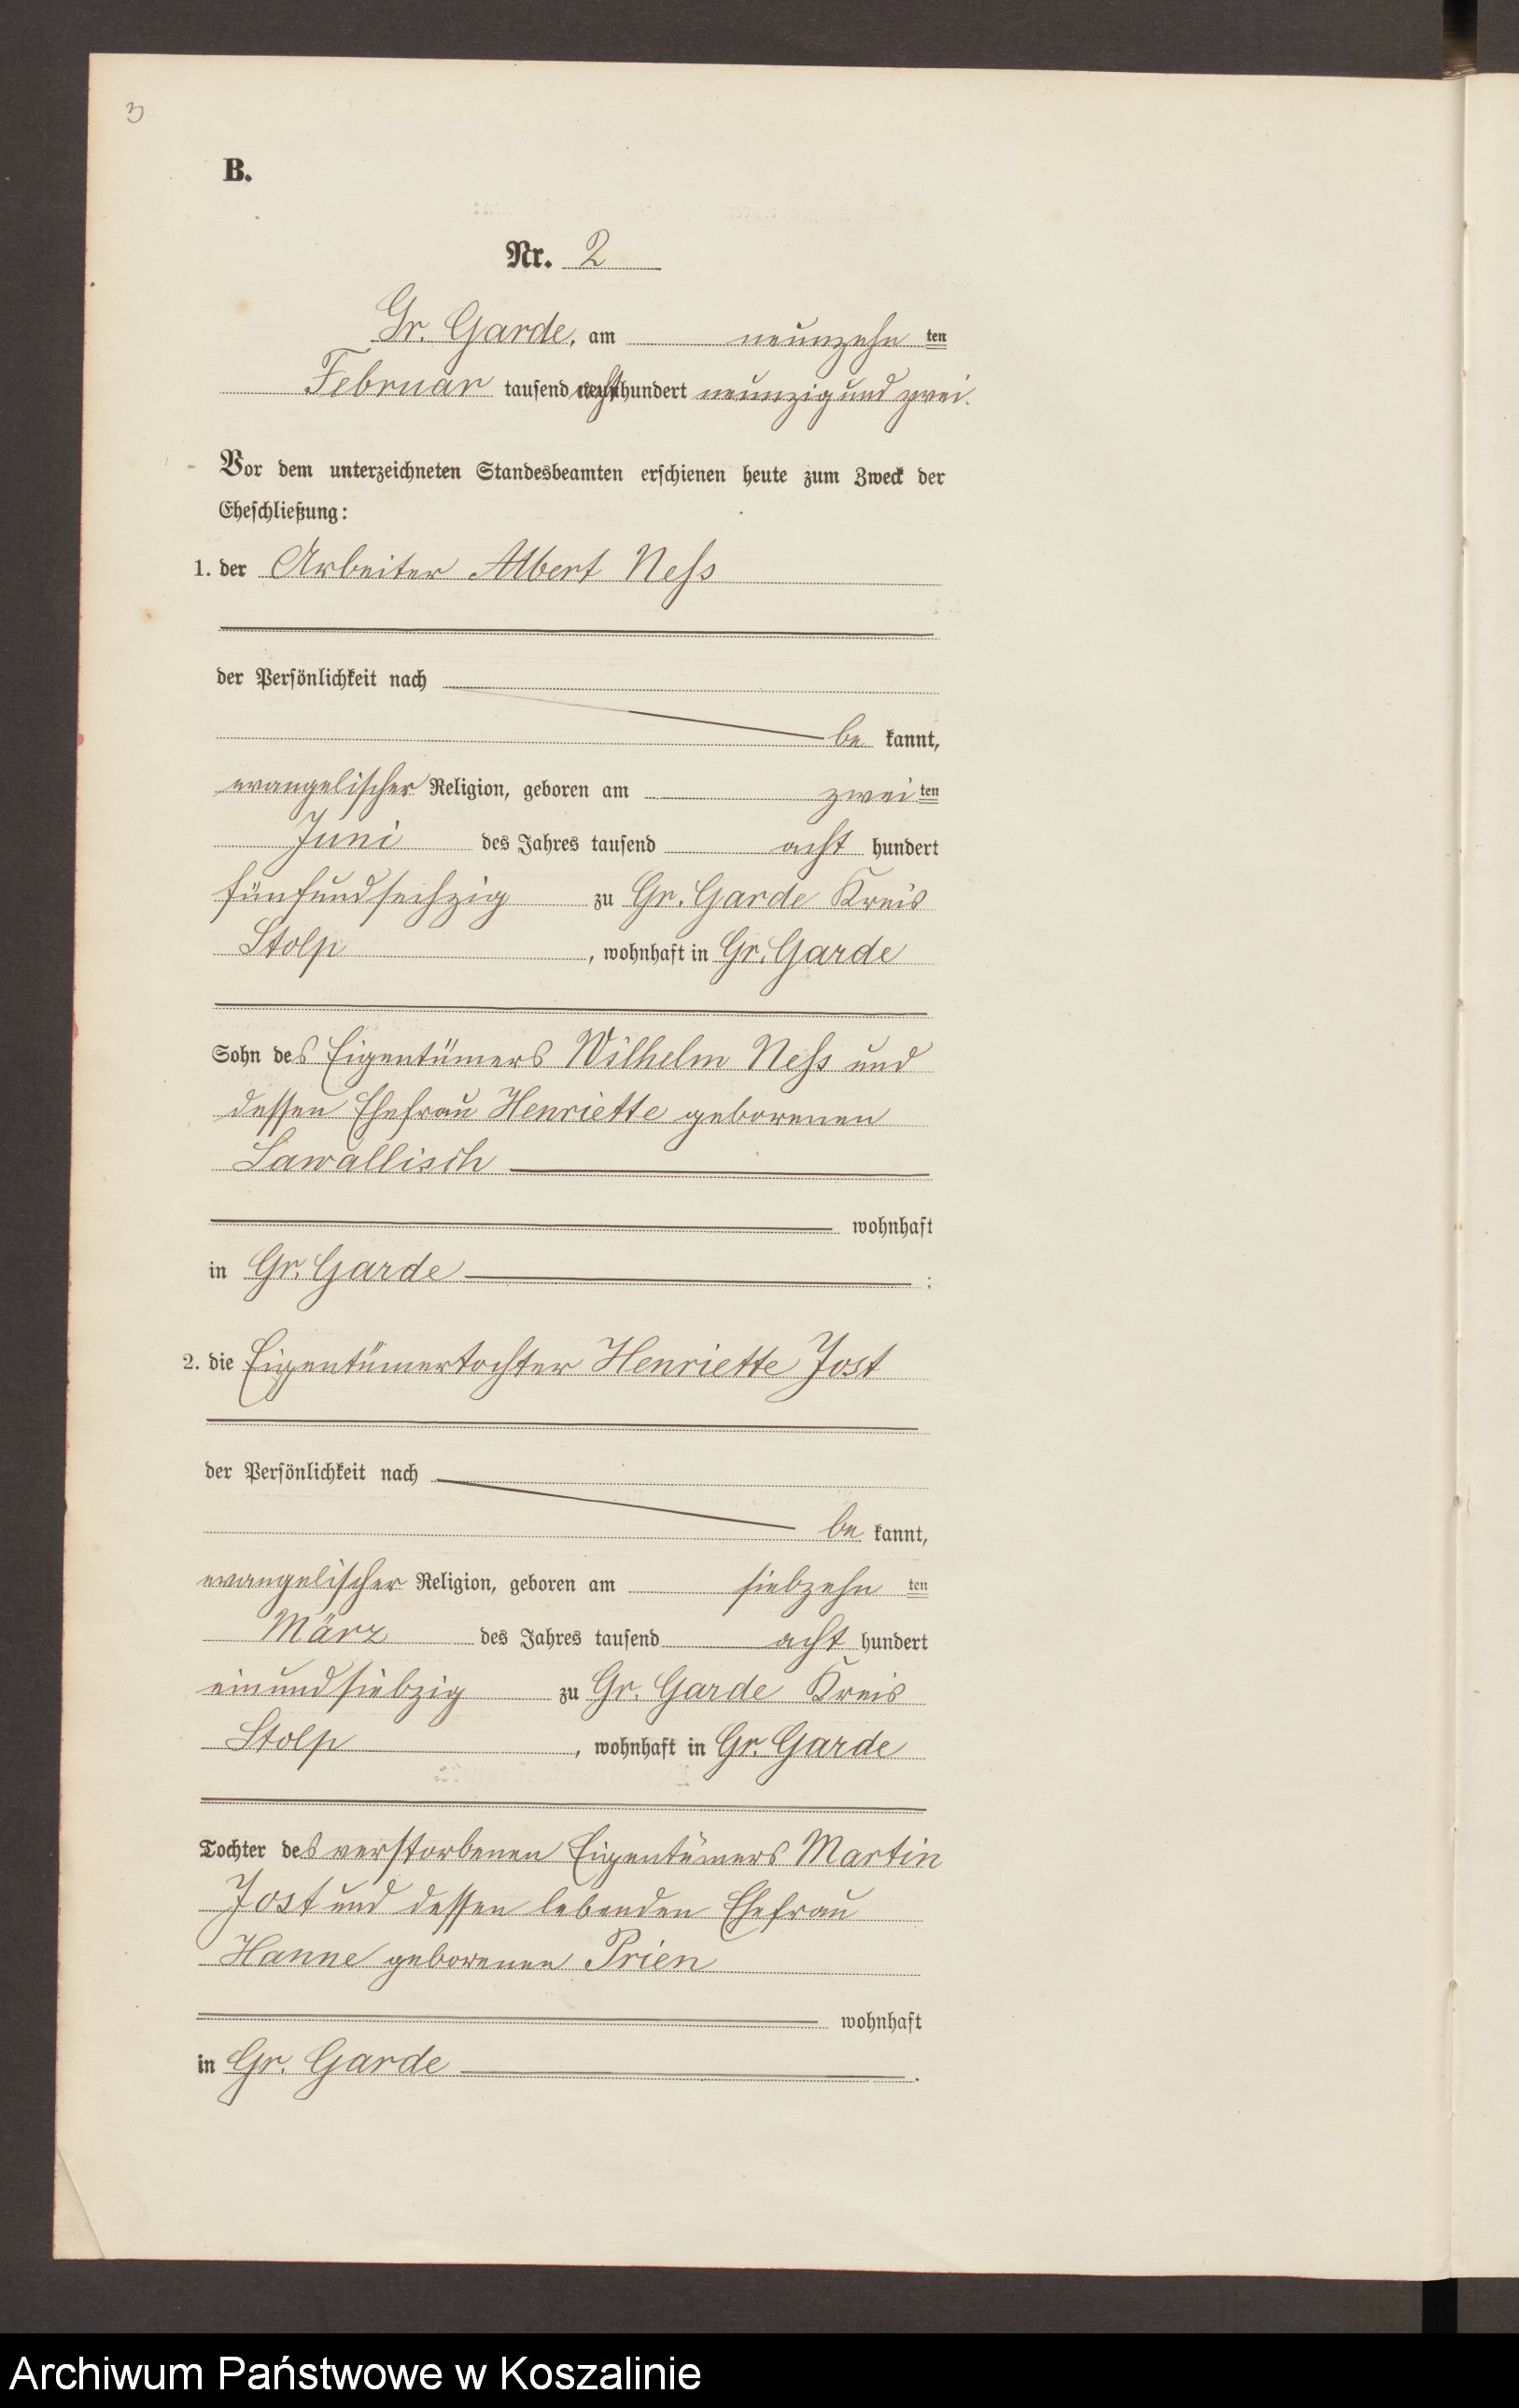 3
B.
Nr. 2
Gr. Garde, am neunzehn ten
Februar tausend acht hundert neunzig und zwei.
Vor dem unterzeichneten Standesbeamten erschienen heute zum Zweck der
Eheschließung:
1. der Arbeiter Albert Neſs
der Persönlichkeit nach
be kannt,
evangelischer Religion, geboren am zwei ten
Juni des Jahres tausend acht hundert
fünfundsechzig zu Gr. Garde Kreis
Stolp, wohnhaft in Gr. Garde
Sohn des Eigentümers Wilhelm Neſs und
dessen Ehefrau Henriette geborenen
Lawallisch
wohnhaft
in Gr. Garde ;
2. die Eigentümertochter Henriette Jost
der Persönlichkeit nach
be kannt,
evangelischer Religion, geboren am siebzehn ten
März des Jahres tausend acht hundert
einundsiebzig zu Gr. Garde Kreis
Stolp, wohnhaft in Gr. Garde
Tochter des verstorbenen Eigentümers Martin
Jost und dessen lebenden Ehefrau
Hanne geborenen Prien
wohnhaft
in Gr. Garde .
Archiwum Państwowe w Koszalinie